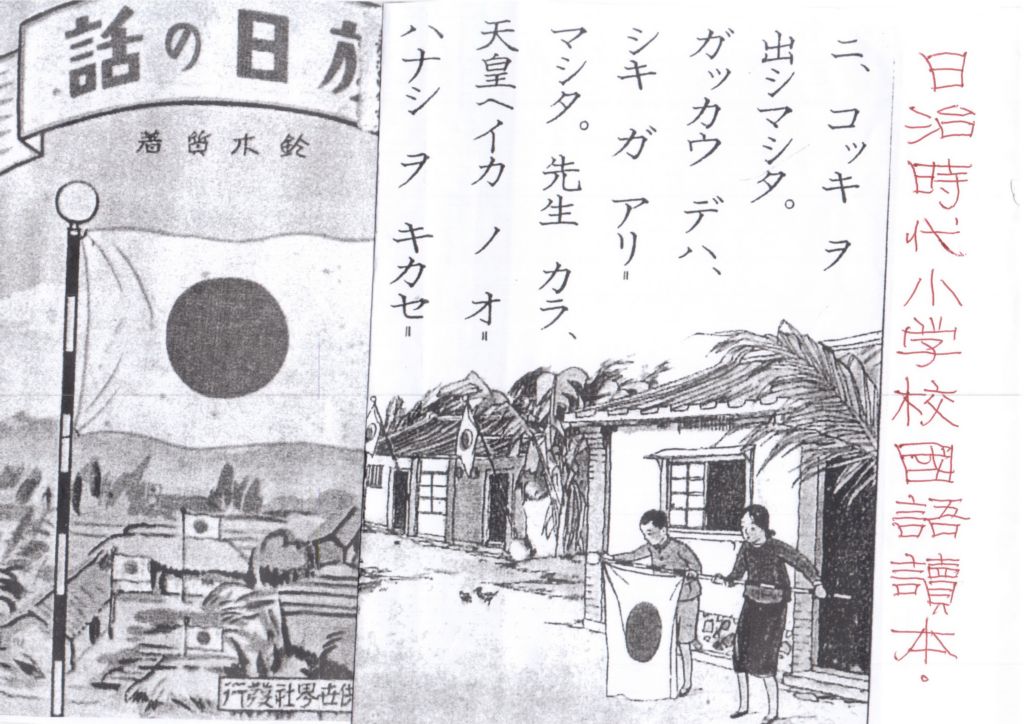 日治時代小学校國語讀本.
ニ、コッキ ヲ
出シマシタ。
ガッカウ デハ、
シキ ガ アリ=
マシタ。先生 カラ、
天皇ヘイカ ノ オ=
ハナシ ヲ キカセ=
旗日の話
鈴木質著
世界社發行